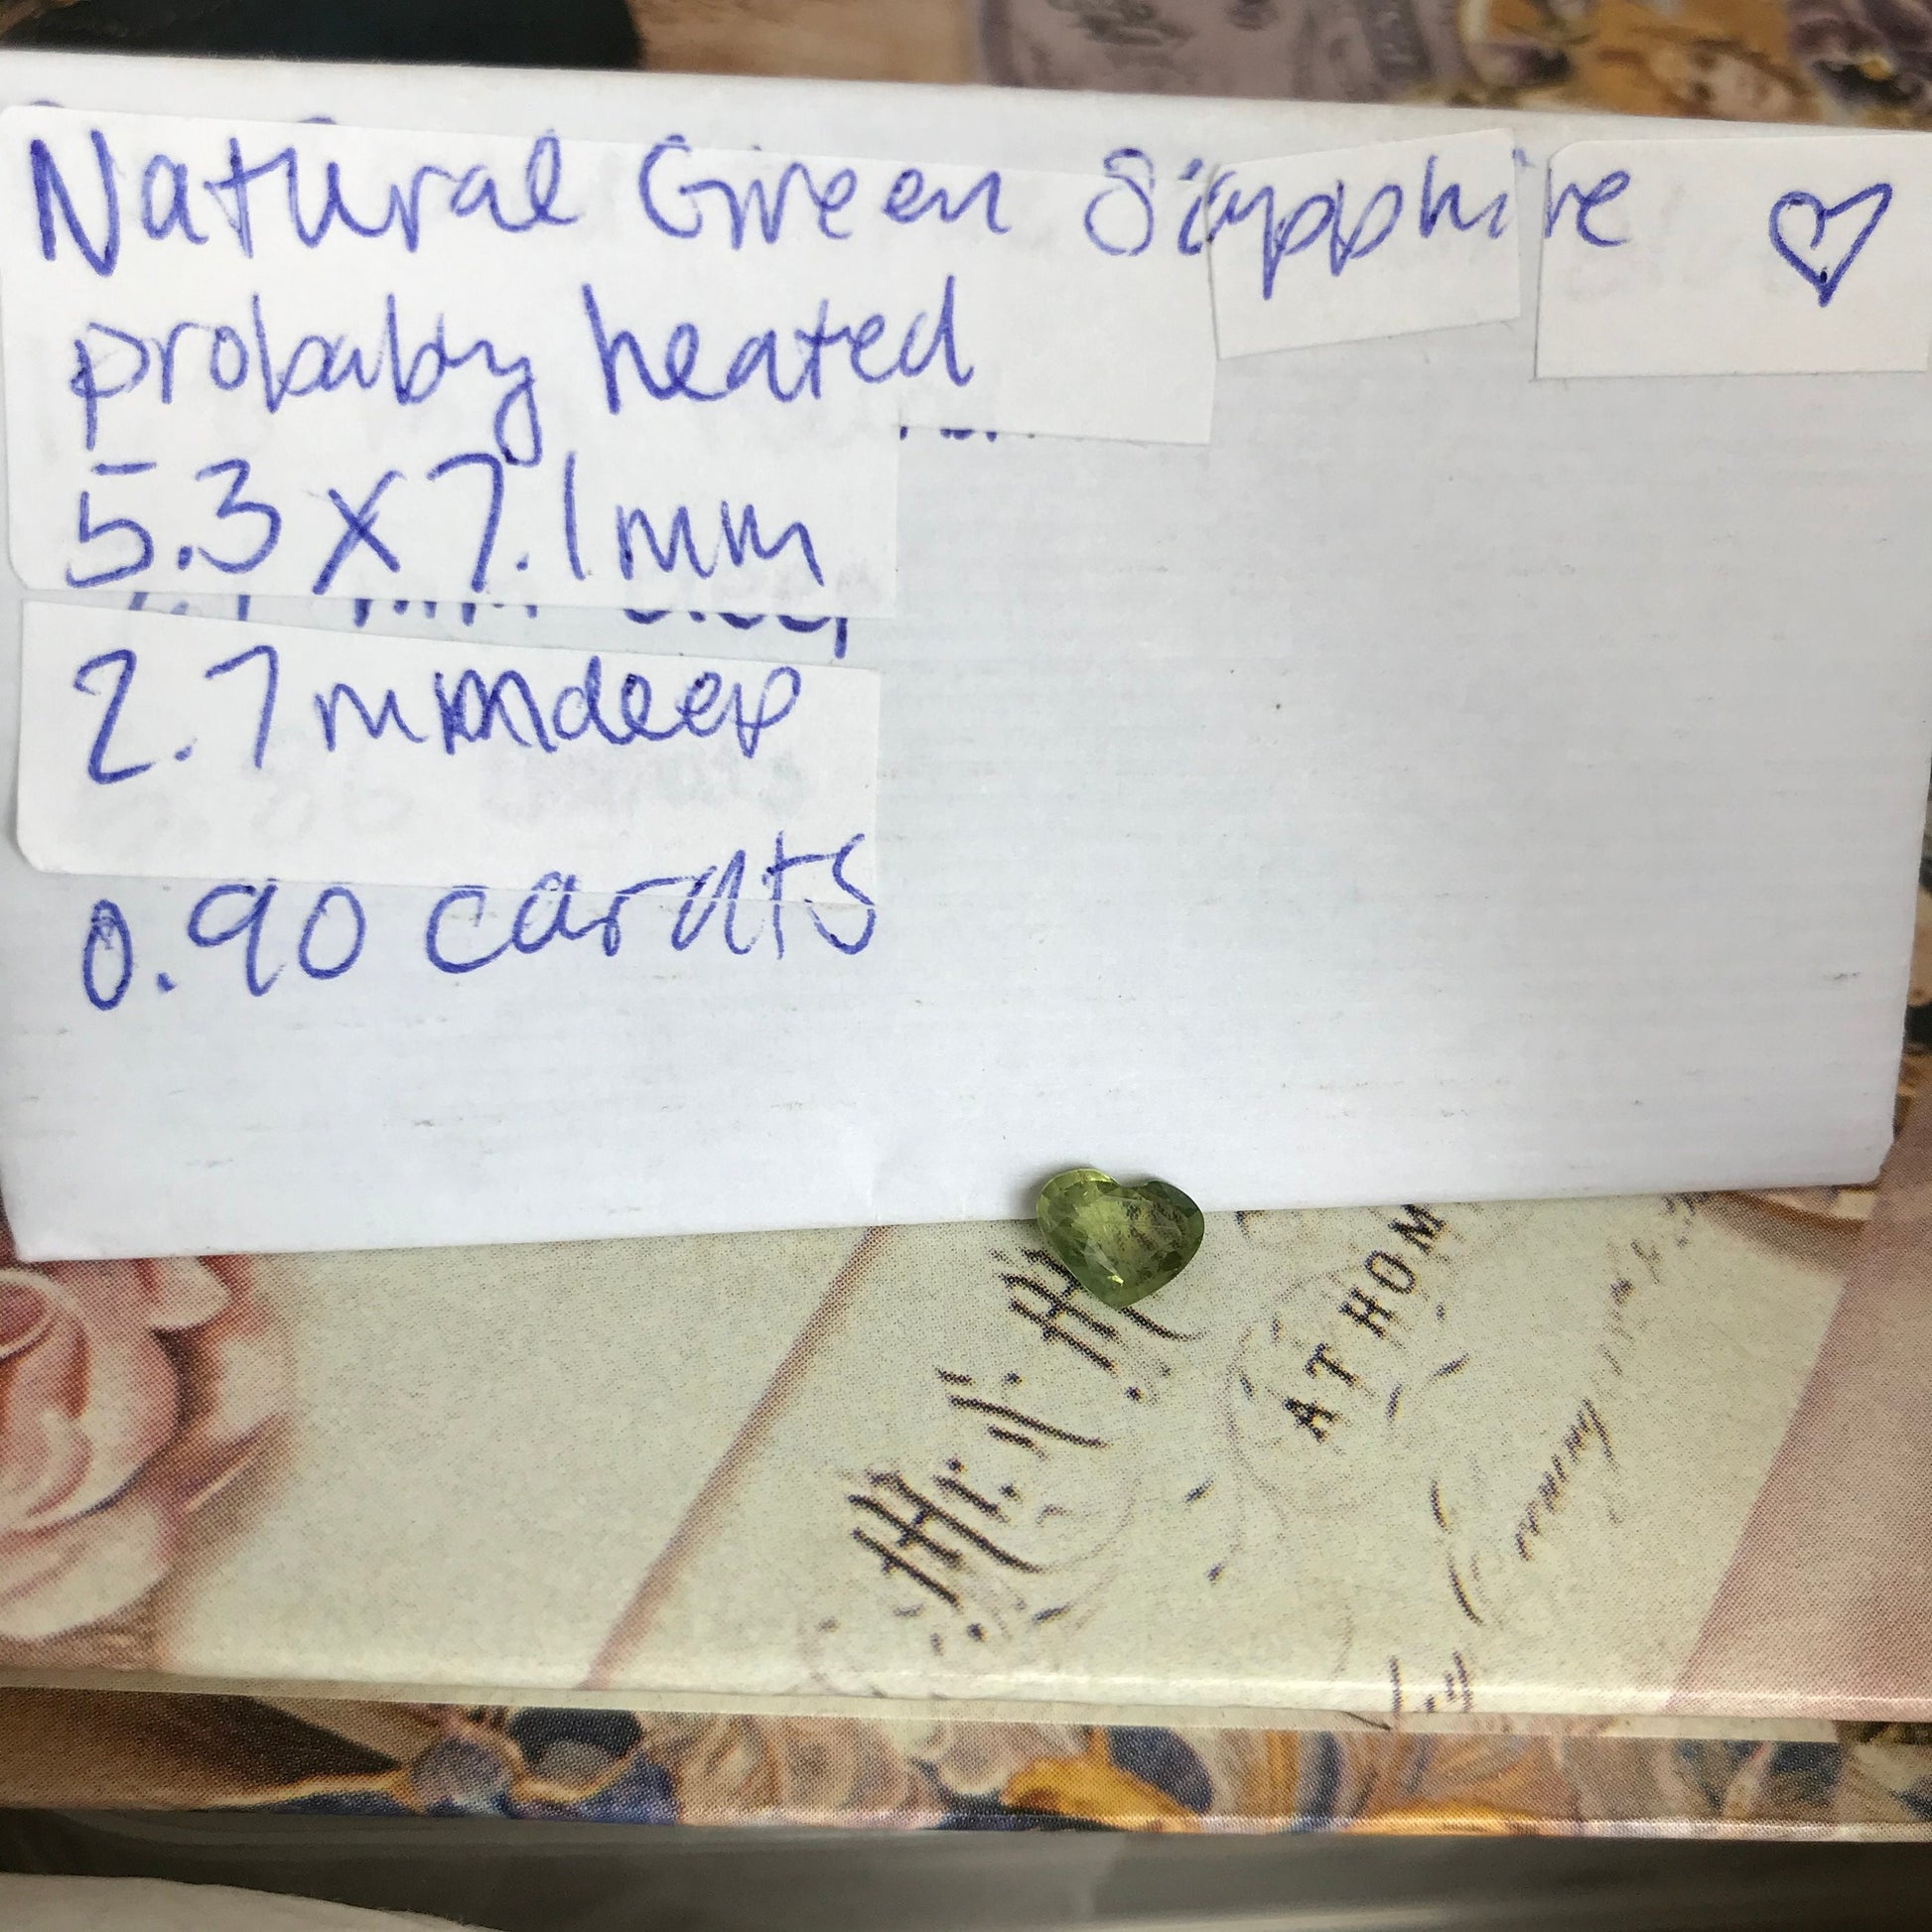 Natural Green Sapphire ♡
probably heated
5.3 x 7.1mm
2.7mm deep
0.90 carats
AT HOM